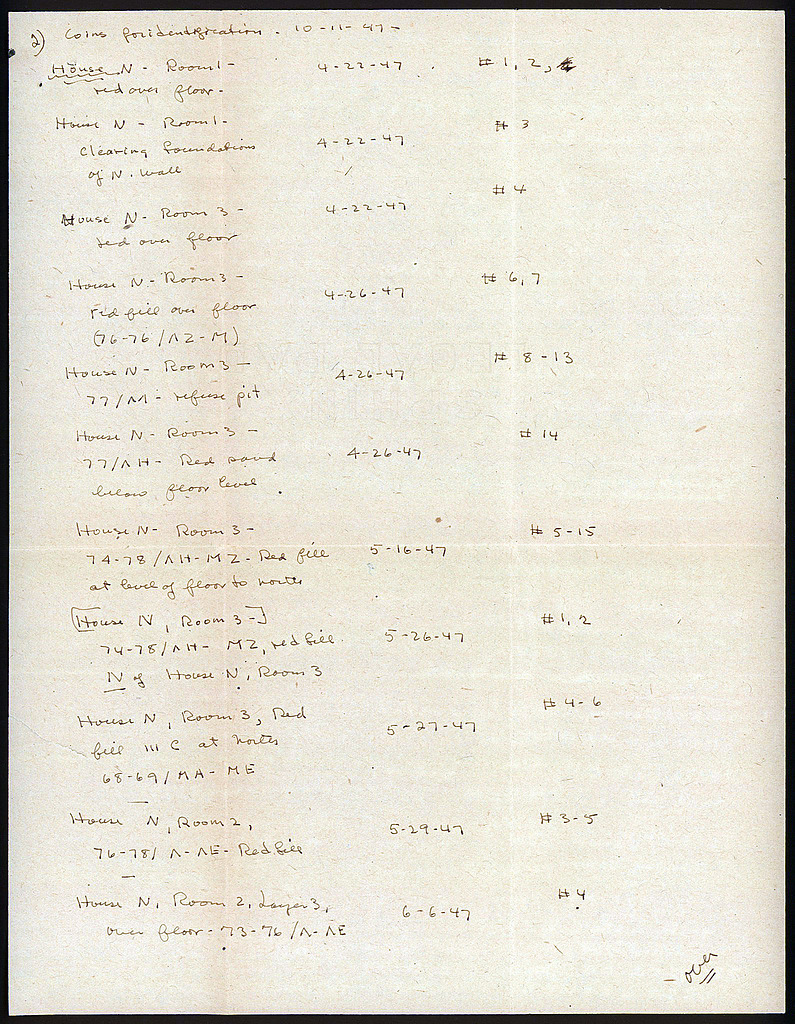 2) Coins for identification. 10-11-47-
House N - Room 1 - 4-22-47 # 1, 2,
red over floor -
House N - Room 1 - # 3
Clearing foundations 4-22-47
of N. wall
# 4
House N - Room 3 - 4-22-47
red over floor
House N - Room 3 - # 6, 7
red fill over floor 4-26-47
(76-76/ΛZ-M)
House N - Room 3 - 4-26-47 # 8-13
77/ΛΛ - refuse pit
House N - Room 3 - # 14
77/ΛH - Red sand 4-26-47
below floor level
House N - Room 3 - # 5-15
74-78/ΛH-MZ - Red fill 5-16-47
at level of floor to north
[House N, Room 3-] # 1, 2
74-78/ΛH- MZ, red fill 5-26-47
N of House N, Room 3
# 4-6
House N, Room 3, Red 5-27-47
fill III C at north
68-69/MA-ME
House N, Room 2, 5-29-47 # 3-5
76-78/Λ-ΛE - Red fill
# 4
House N, Room 2, Layer 3, 6-6-47
over floor - 73-76/Λ-ΛE
- over